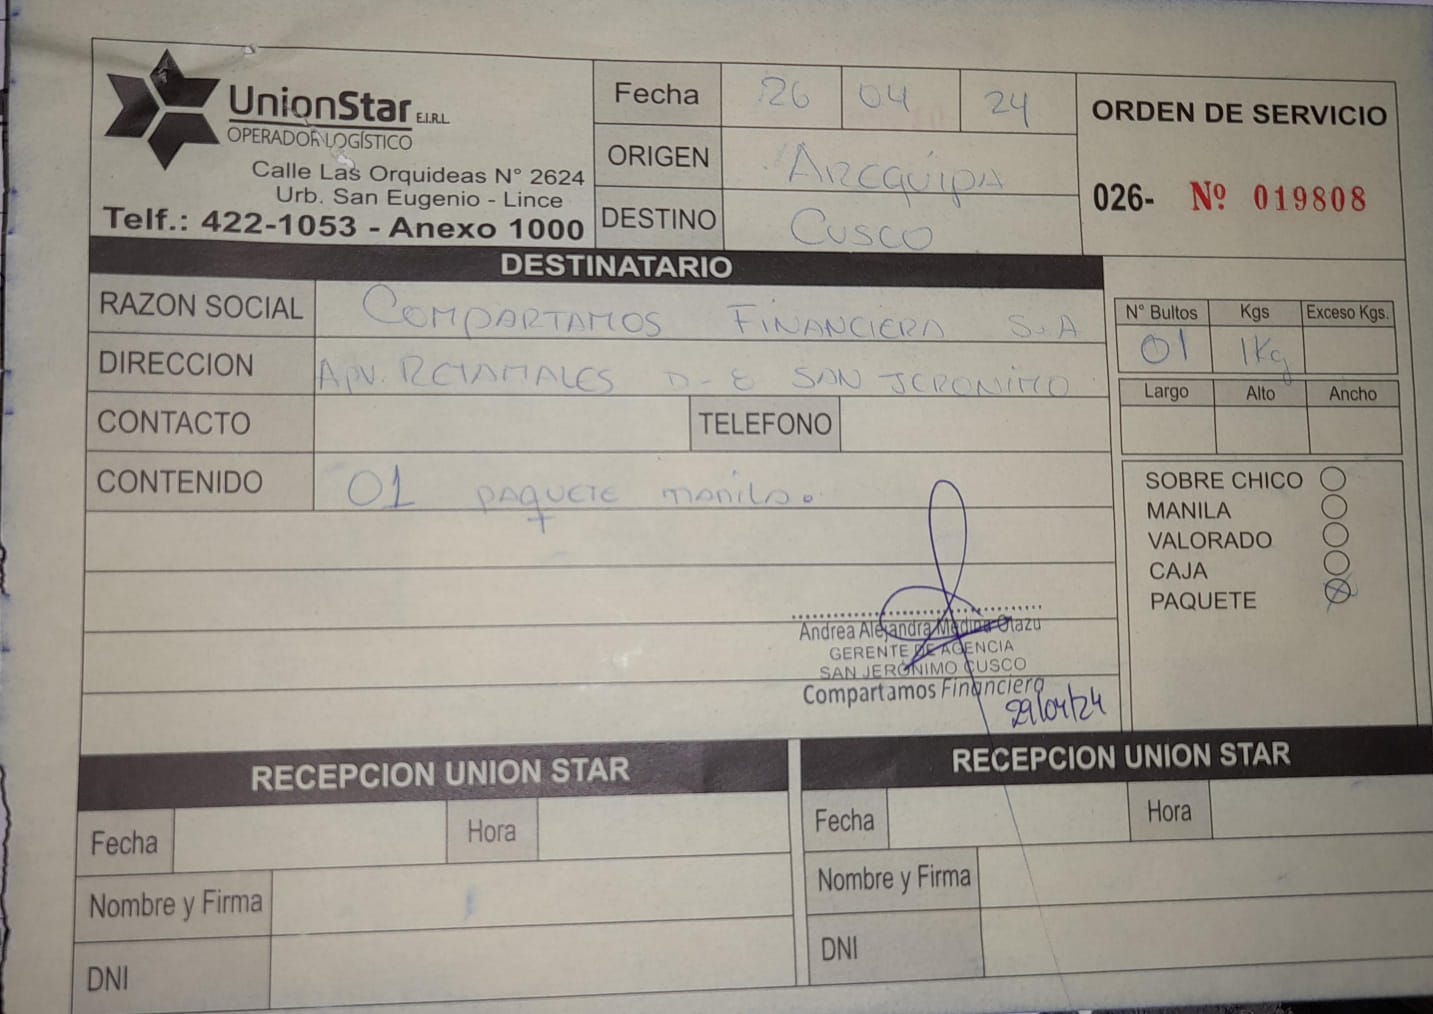 UnionStar E.I.R.L
OPERADOR LOGÍSTICO
Calle Las Orquideas N° 2624
Urb. San Eugenio - Lince
Telf.: 422-1053 - Anexo 1000
Fecha 26 04 24
ORIGEN AREQUIPA
DESTINO CUSCO
ORDEN DE SERVICIO
026- Nº 019808
DESTINATARIO
RAZON SOCIAL COMPARTAMOS FINANCIERA S.A
DIRECCION APV. RETAMALES D-8 SAN JERONIMO
CONTACTO TELEFONO
CONTENIDO 01 PAQUETE manila.
N° Bultos Kgs Exceso Kgs.
01 1Kg
Largo Alto Ancho
SOBRE CHICO
MANILA
VALORADO
CAJA
PAQUETE
Andrea Alejandra Medina Olazu
GERENTE DE AGENCIA
SAN JERÓNIMO CUSCO
Compartamos Financiera
29/04/24
RECEPCION UNION STAR
Fecha Hora
Nombre y Firma
DNI
RECEPCION UNION STAR
Fecha Hora
Nombre y Firma
DNI